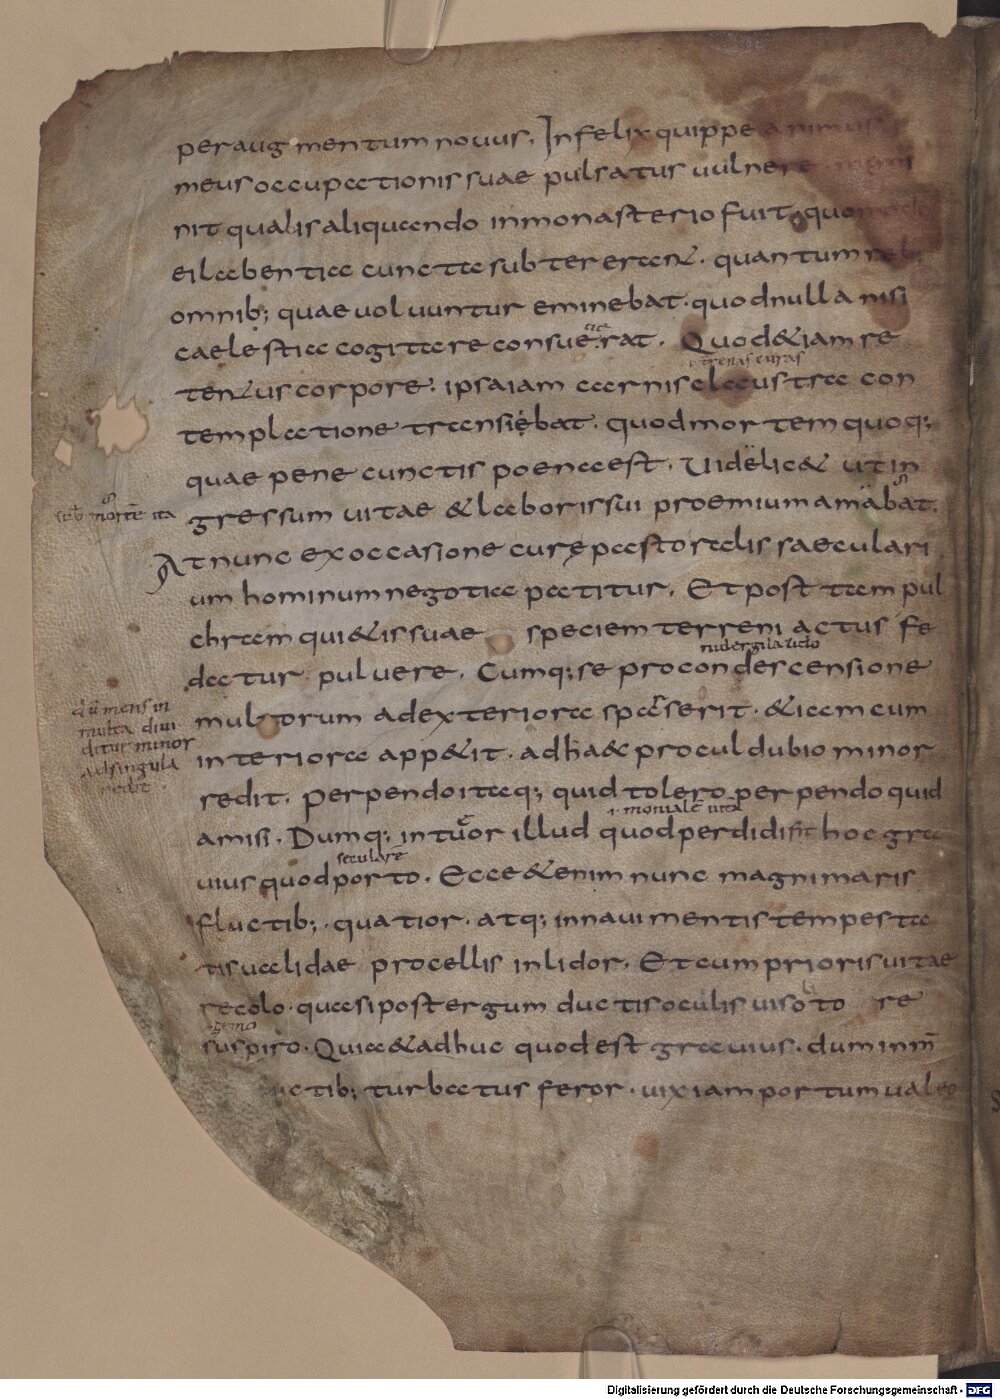 per augmentum novus. Infelix quippe animus
meus occupationis suae pulsatus vulnere memi
nit qualis aliquando in monasterio fuit. quomodo
ei labentia cuncta subter erant. quantum reb;
omnib; quae volvuntur eminebat. quod nulla nisi
caelestia cogitare consuerat. Quod & iam re
tentus corpore. ipsa iam carnis claustra con
templatione transiebat. quod mortem quoq;
quae pene cunctis poena est. Videlic& ut in
gressum vitae & laboris sui proemium amabat.
sub morte ita
At nunc ex occasione curę pastoralis saeculari
um hominum negotia patitur. Et post tam pul
chram qui&is suae speciem terreni actus fe
datur pulvere. Cumq; se pro condescensione
dū mens in
multa divi
ditur minor
ad singula
redit
multorum ad exteriora sparserit. & iam cum
interiora app&it. ad haec procul dubio minor
redit. Perpendo itaq; quid tolero perpendo quid
.i. monialē vitā
amisi. Dumq; intuor illud quod perdidi fit hoc gra
seculare
vius quod porto. Ecce &enim nunc magni maris
fluctib; quatior. atq; in navi mentis tempesta
tis validae procellis inlidor. Et cum prioris vitae
recolo. quasi post tergum ductis oculis viso lito re
gemo
suspiro. Quia & adhuc quod est gravius. dum inm̄
uctib; turbatus feror. vix iam portum valeo
Digitalisierung gefördert durch die Deutsche Forschungsgemeinschaft - DFG